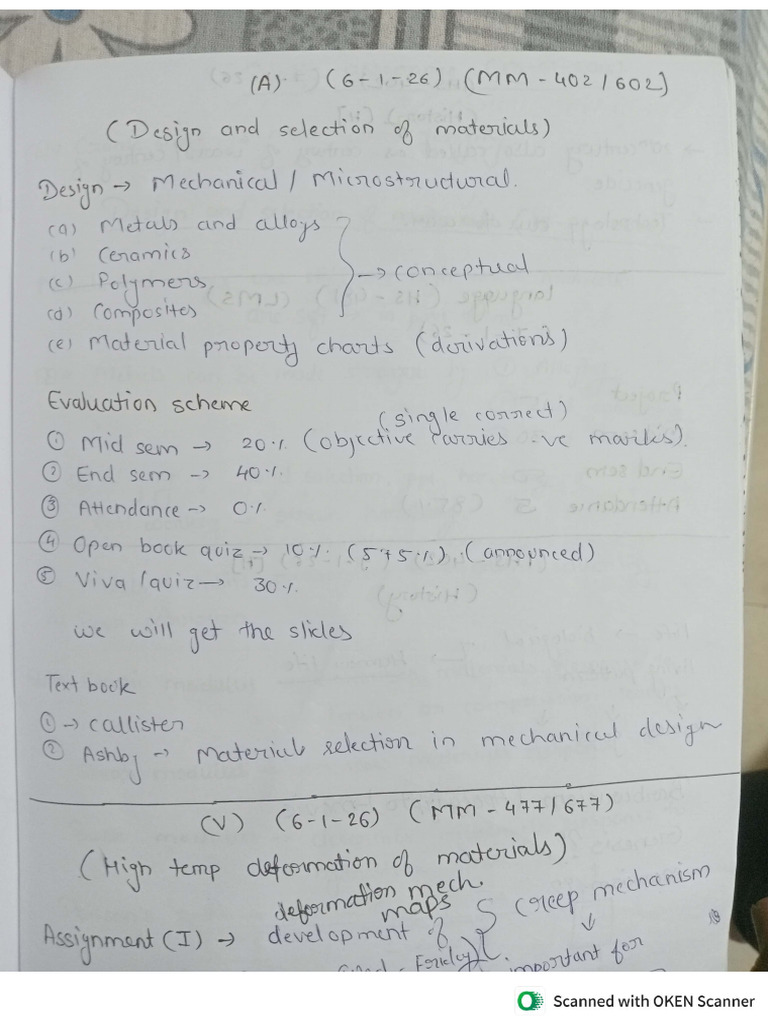 (A). (6-1-26) (MM - 402/602)
(Design and selection of materials)
Design → Mechanical / Microstructural.
(a) Metals and alloys
(b) Ceramics
(c) Polymers
→ conceptual
(d) Composites
(e) Material property charts (derivations)
Evaluation scheme
(single correct)
① Mid sem → 20% (objective carries -ve marks).
② End sem → 40%
③ Attendance → 0%
④ Open book quiz → 10% (5+5%) (announced)
⑤ Viva/quiz → 30%
we will get the slides
Text book
① → callister
② Ashby → Material selection in mechanical design
(V) (6-1-26) (MM - 477/677)
(High temp deformation of materials)
deformation mech.
maps
Assignment (I) → development of { Creep mechanism
important for
Scanned with OKEN Scanner